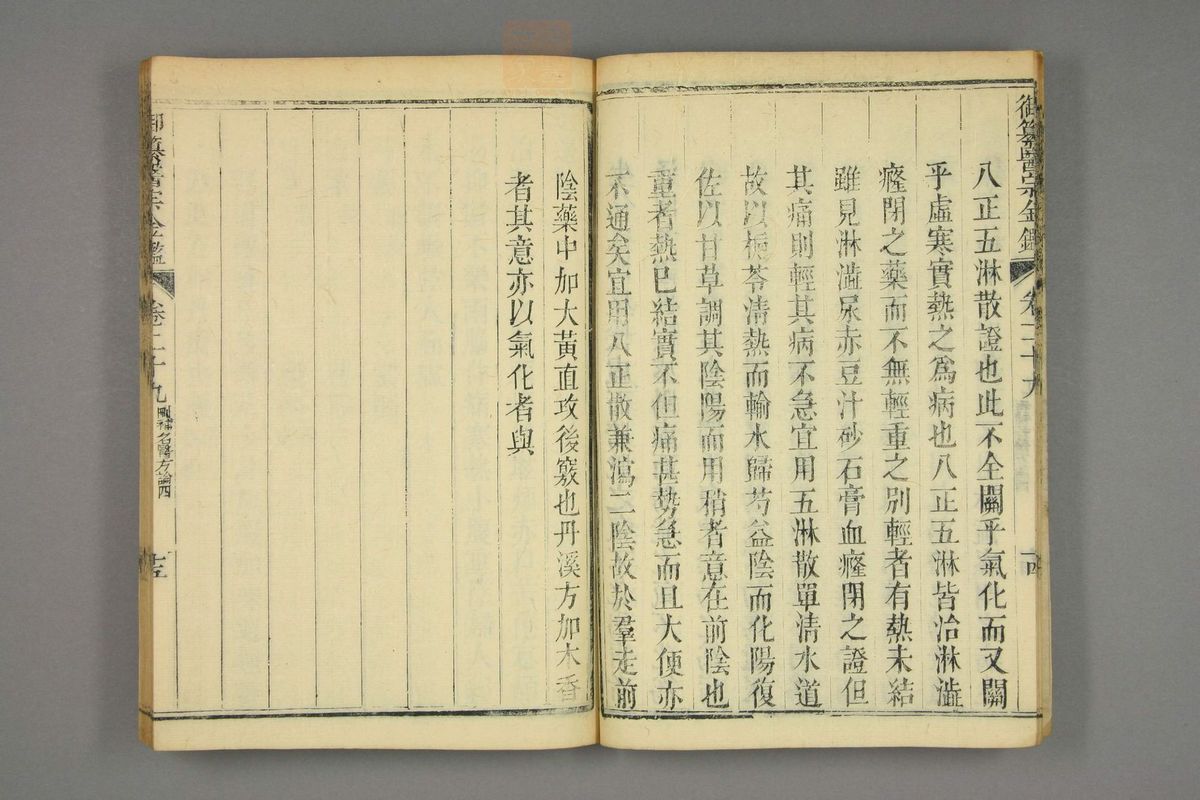 御纂醫宗金鑑 卷二十九
八正五淋散證也此不全關乎氣化而又關
乎虛寒實熱之為病也八正五淋皆治淋澁
癃閉之藥而不無輕重之別輕者有熱未結
雖見淋澁尿赤豆汁砂石膏血癃閉之證但
其痛則輕其病不急宜用五淋散單清水道
故以梔苓清熱而輸水歸芍益陰而化陽復
佐以甘草調其陰陽而用稍者意在前陰也
重者熱已結實不但痛甚勢急而且大便亦
不通矣宜用八正散兼瀉二陰故於羣走前
陰藥中加大黃直攻後竅也丹溪方加木香
者其意亦以氣化者與
御纂醫宗金鑑 卷二十九 刪補名醫方論四